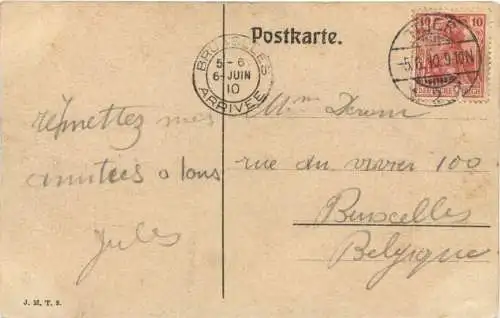 Postkarte.
10 10
TRIER
-5.6.10.9-10N
DEUTSCHES REICH
BRUXELLES
5 - 6
6-JUIN
10
ARRIVEE
remettez mes
amitiés a tous
Jules
Mme
rue du vivier 100
Bruxelles
Belgique
J. M. T. S.